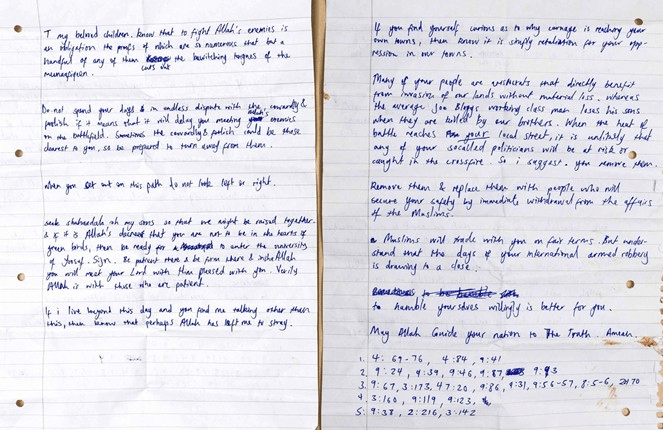 my beloved children know that to fight Allah's enemies is
an obligation the proofs of which are so numerous that but a
handful of any of them cuts out the bewitching tongues of the
munafiqeen.
Do not spend your days in endless dispute with the cowardly &
foolish if it means that it will delay your meeting Allah's enemies
on the battlefield. Sometimes the cowardly & foolish could be those
dearest to you, so be prepared to turn away from them.
When you set out on this path do not look left or right.
Seek shaheedala oh my sons so that we might be raised together.
& if it is Allah's decree that you are not to be in the hearts of
green birds, then be ready for to enter the university
of Yusuf. Sijn. Be patient there & be firm there & insha Allah
you will meet your Lord with Him pleased with you. Verily
Allah is with those who are patient.
If i live beyond this day and you find me talking other than
this, then know that perhaps Allah has left me to stray.
If you find yourself curious as to why carnage is reaching your
own towns, then know it is simply retaliation for your opp-
ression in our towns.
Many of your people are aristocrats that directly benefit
from invasion of our lands without material loss. Whereas
the average Joe Bloggs working class man loses his sons
when they are killed by our brothers. When the heat of
battle reaches your local street, it is unlikely that
any of your socalled politicians will be at risk or
caught in the crossfire. So i suggest you remove them.
Remove them & replace them with people who will
secure your safety by immediate withdrawal from the affairs
of the Muslims.
Muslims will trade with you on fair terms. But under-
stand that the days of your international armed robbery
is drawing to a close.
to humble yourselves willingly is better for you.
May Allah Guide your nation to The Truth. Ameen.
1. 4: 69-76, 4:84, 9:41
2. 9:24, 9:39, 9:46, 9:87,
3. 9:67, 3:173, 47:20, 9:86, 9:31, 9:56-57, 8:5-6,
4. 3:160, 9:119, 9:123,
5. 9:38, 2:216, 3:142